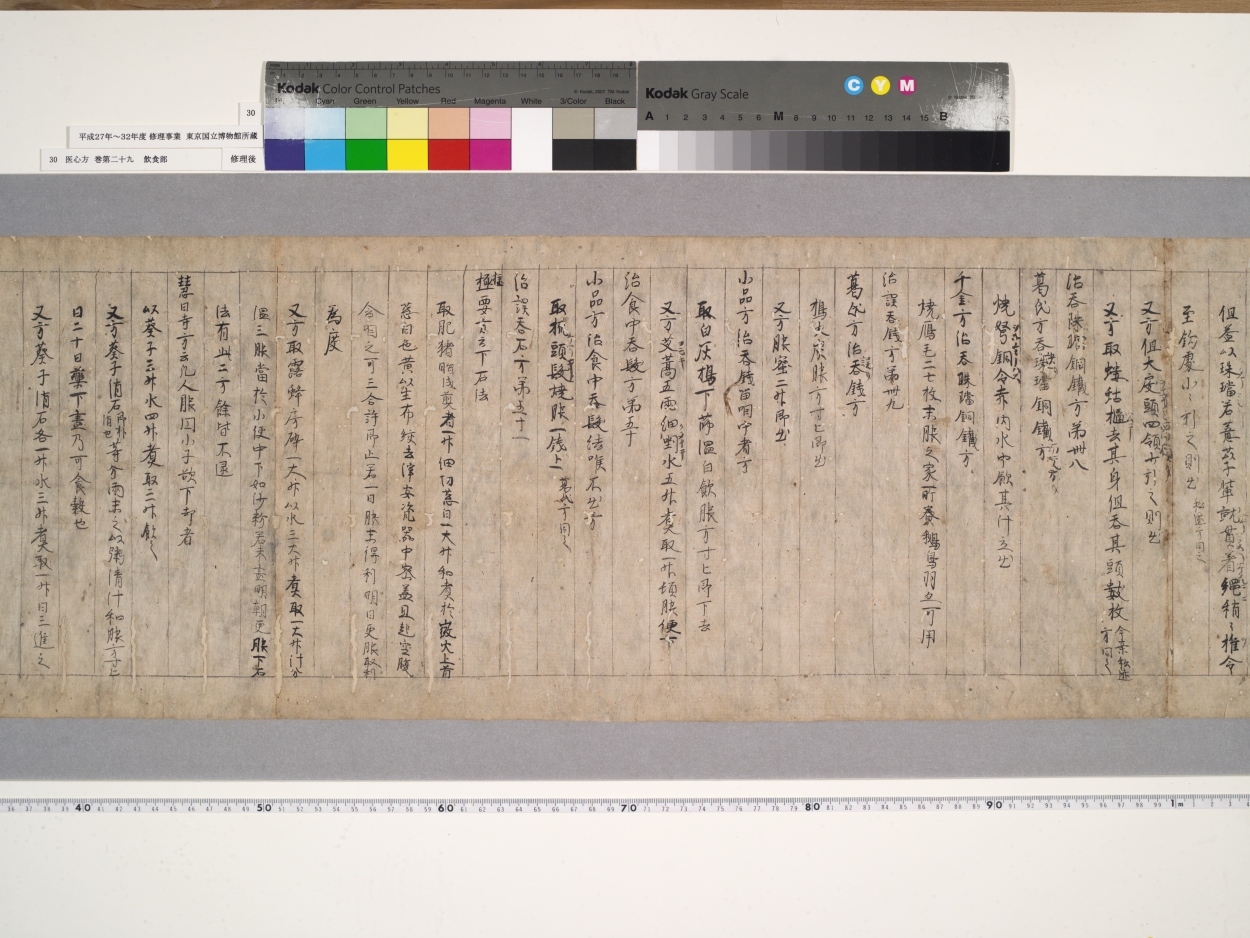 Kodak Color Control Patches
Cyan Green Yellow Red Magenta White 3/Color Black
Kodak Gray Scale
C Y M
A 1 2 3 4 5 6 M 8 9 10 11 12 13 14 15 B
30
平成27年～32年度 修理事業 東京国立博物館所蔵
30 医心方 巻第二十九 飲食部 修理後
但益以珠璫若薏苡子輩就貫著縄稍〻推令
至鈎處小〻引之則出
又方但大虎頭四領以引之則出
又方取蛛蛄楹去其身但吞其頭數枚
治吞珠璫銅鐵方第卌八
葛氏方吞珠璫銅鐵方
燒弩銅令赤内水中飲其汁立出
千金方治吞珠璫銅鐵方
燒鴈毛二七枚末服之家貯養鵝鳥羽亦可用
治誤吞錢方第卌九
葛氏方治吞錢方
搗火炭服方寸匕即出
又方服蜜二升即出
小品方治吞錢留咽中者方
取白灰搗下篩温白飲服方寸匕即下去
又方艾蒿五兩細剉水五升煮取一升頓服便下
治食中吞髮方第五十
小品方治食中吞髮結喉不出方
取梳頭髮燒服一錢上 葛氏方同之
治誤吞石方第五十一
極要方云下石法
取肥猪脂成煎者一升細切葱白一大升和煮於微火上着
葱白色黄以生布絞去滓安瓷器中密蓋且起空腹
含咽之可三合許即止若一日服未得利明日更服取利
為度
又方取露蜂房碎一大升以水三大升煮取一大升汁分
温三服當於小便中下如沙粉若未盡明朝更服下石
法有此二方餘皆不還
慧日寺方云凡人服因小子欲下却者
以葵子三升水四升煮取二升飲之
又方葵子消石等分兩末之以粥清汁和服方寸匕
日二十日藥下盡乃可食穀也
又方葵子消石各一升水三升煮取一升日三進之
40 50 60 70 80 90 1m